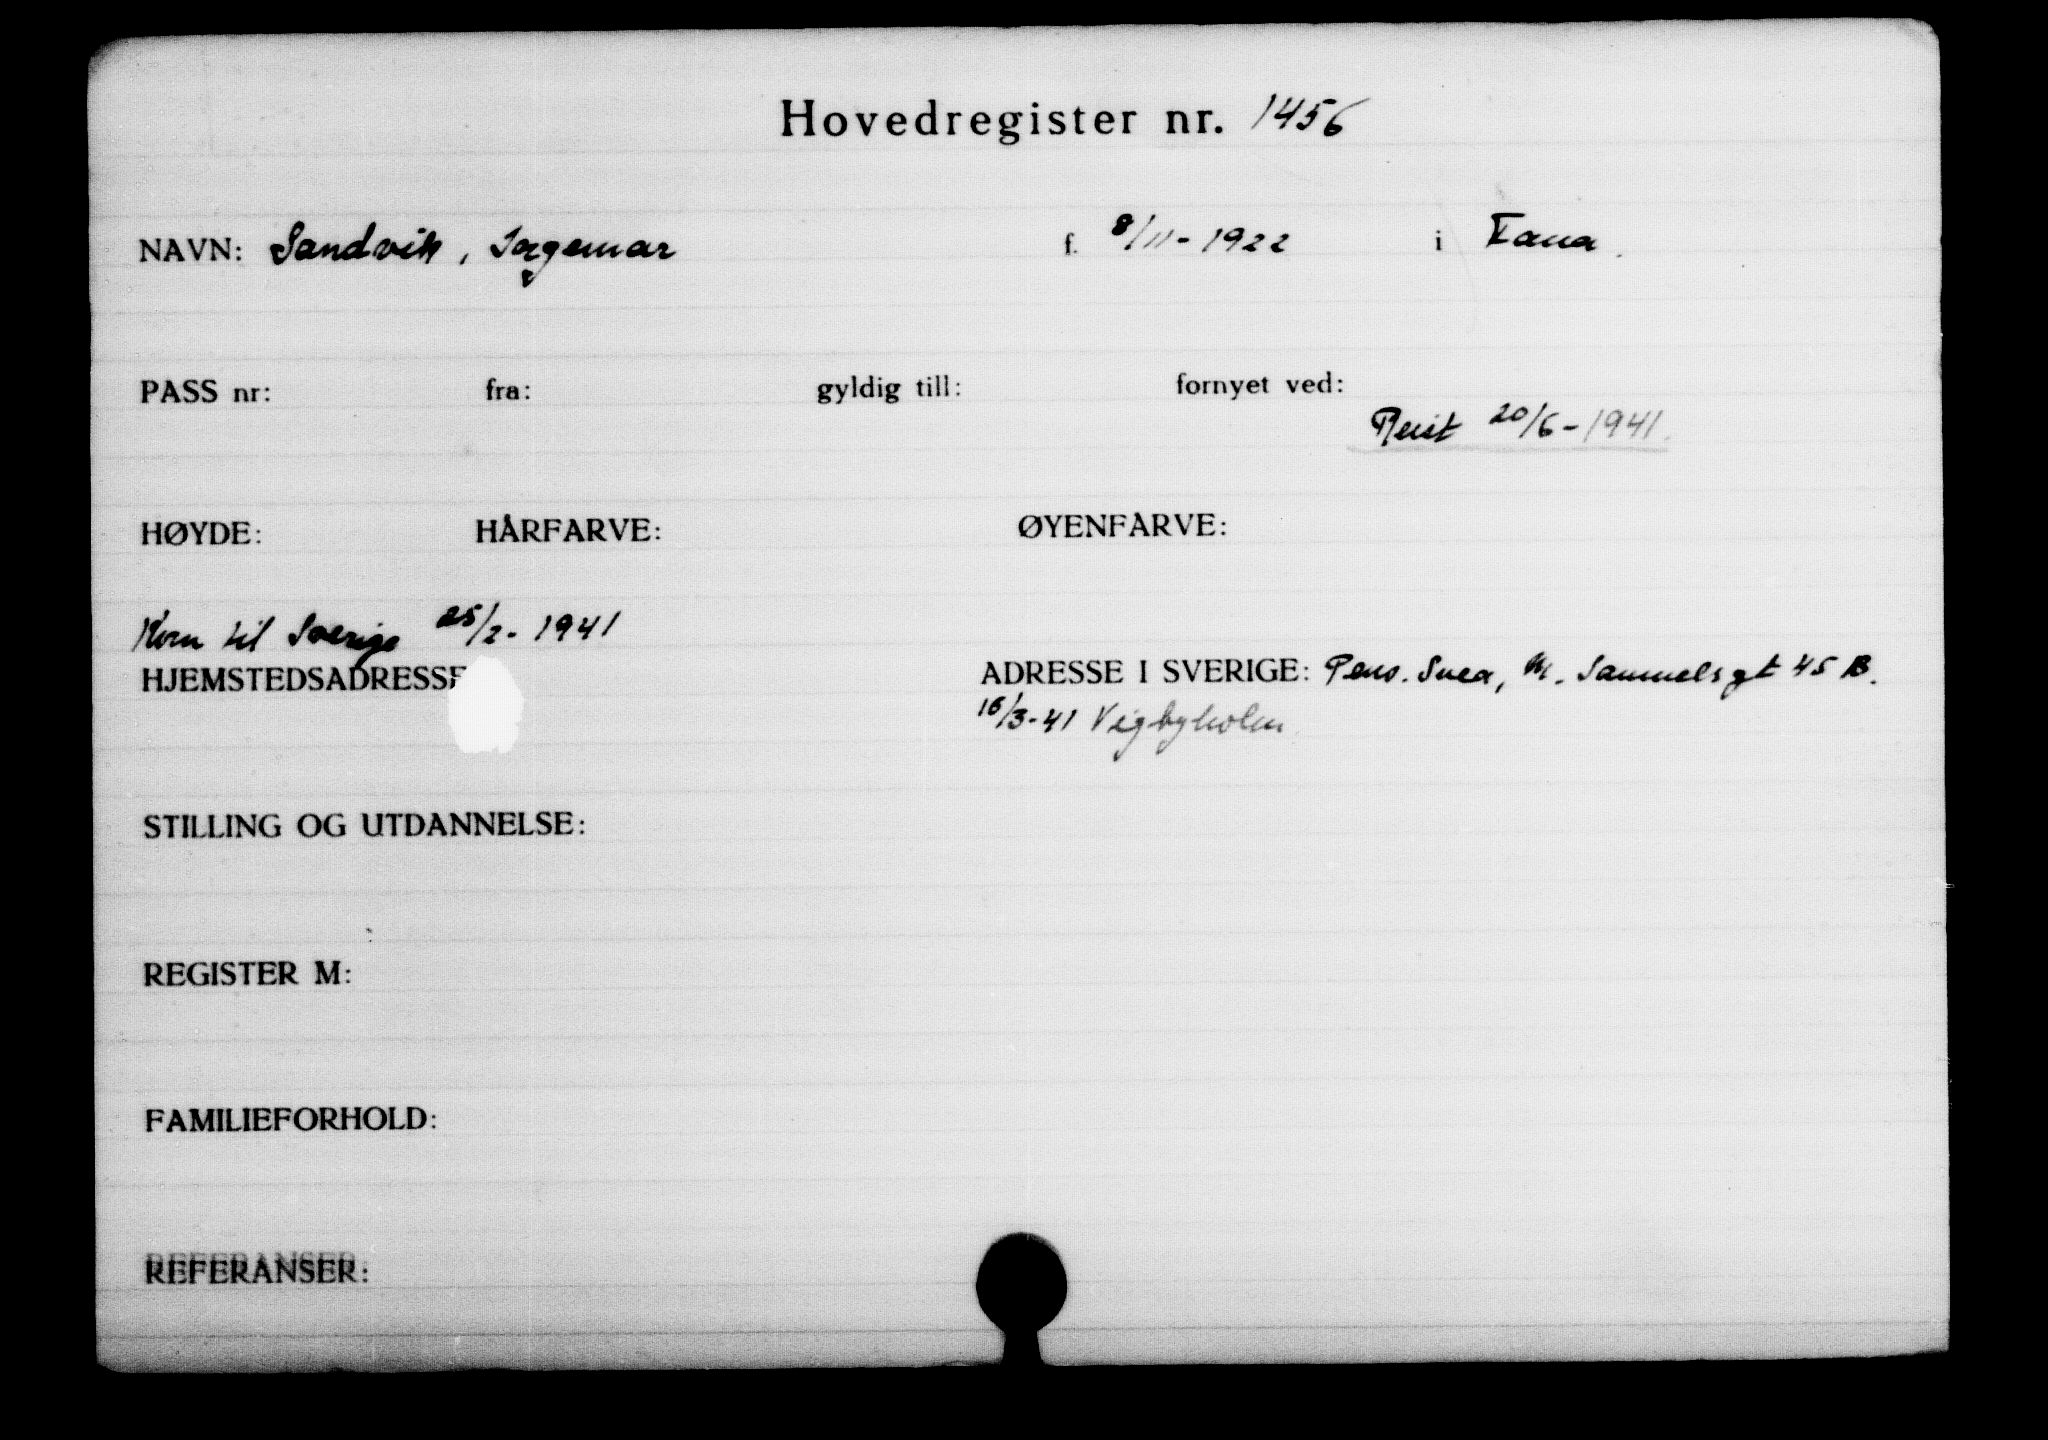 Hovedregister nr. 1456
NAVN: Sandvik, Ingemar f. 8/11-1922 i Fana.
PASS nr: fra: gyldig till: fornyet ved:
Reist 20/6-1941.
HØYDE: HÅRFARVE: ØYENFARVE:
Kom til Sverige 25/2-1941
HJEMSTEDSADRESSE ADRESSE I SVERIGE: Pens. Svea, M. Samuelsgt 45 B.
16/3-41 Vigbyholm
STILLING OG UTDANNELSE:
REGISTER M:
FAMILIEFORHOLD:
REFERANSER: